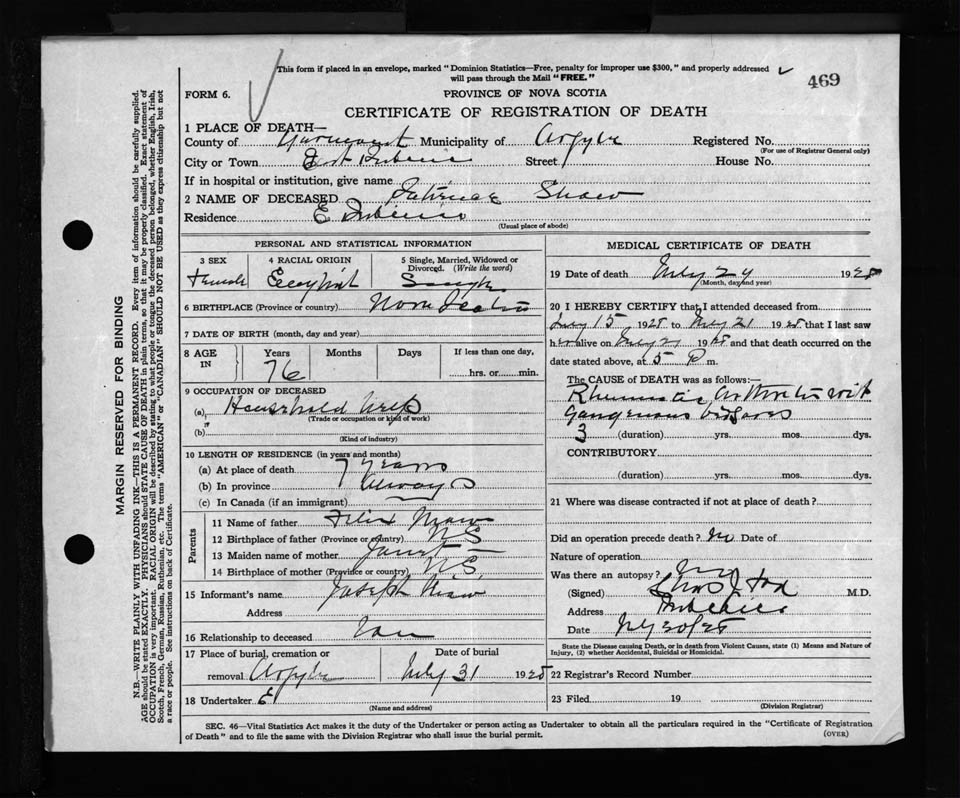 This form if placed in an envelope, marked "Dominion Statistics—Free, penalty for improper use $300," and properly addressed
will pass through the Mail "FREE."
469
FORM 6.
PROVINCE OF NOVA SCOTIA
CERTIFICATE OF REGISTRATION OF DEATH
1 PLACE OF DEATH—
County of Yarmouth Municipality of Argyle Registered No.
(For use of Registrar General only)
City or Town East Street House No.
If in hospital or institution, give name
2 NAME OF DECEASED
Residence E
(Usual place of abode)
PERSONAL AND STATISTICAL INFORMATION
3 SEX 4 RACIAL ORIGIN 5 Single, Married, Widowed or
Divorced. (Write the word)
Female
6 BIRTHPLACE (Province or country) Nova Scotia
7 DATE OF BIRTH (month, day and year)
8 AGE IN Years Months Days If less than one day,
76 hrs. or min.
9 OCCUPATION OF DECEASED
(a) Household
(Trade or occupation or kind of work)
(b)
(Kind of industry)
10 LENGTH OF RESIDENCE (in years and months)
(a) At place of death 7 years
(b) In province Always
(c) In Canada (if an immigrant)
Parents
11 Name of father
12 Birthplace of father (Province or country) N S
13 Maiden name of mother Janet —
14 Birthplace of mother (Province or country) N.S.
15 Informant's name Joseph
Address
16 Relationship to deceased
17 Place of burial, cremation or Date of burial
removal Argyle July 31 1928
18 Undertaker
(Name and address)
MEDICAL CERTIFICATE OF DEATH
19 Date of death July 29 1928
(Month, day and year)
20 I HEREBY CERTIFY that I attended deceased from
July 15 1928 to July 21 1928 that I last saw
her alive on July 1928 and that death occurred on the
date stated above, at 5 P m.
The CAUSE of DEATH was as follows:—
Rheumatic Arthritis with
Gangrenous
3 (duration) yrs. mos. dys.
CONTRIBUTORY
(duration) yrs. mos. dys.
21 Where was disease contracted if not at place of death?
Did an operation precede death? no Date of
Nature of operation
Was there an autopsy? no
(Signed) Chas J Fox M.D.
Address
Date
State the Disease causing Death, or in death from Violent Causes, state (1) Means and Nature of
Injury, (2) whether Accidental, Suicidal or Homicidal.
22 Registrar's Record Number
23 Filed 19
(Division Registrar)
SEC. 46—Vital Statistics Act makes it the duty of the Undertaker or person acting as Undertaker to obtain all the particulars required in the "Certificate of Registration
of Death" and to file the same with the Division Registrar who shall issue the burial permit.
(OVER)
MARGIN RESERVED FOR BINDING
N.B.—WRITE PLAINLY WITH UNFADING INK—THIS IS A PERMANENT RECORD. Every item of information should be carefully supplied.
AGE should be stated EXACTLY. PHYSICIANS should STATE CAUSE OF DEATH in plain terms, so that it may be properly classified. Exact statement of
OCCUPATION is very important. RACIAL ORIGIN will be described by stating to what people or tongue the deceased person belonged, whether English, Irish,
Scotch, French, German, Russian, Ruthenian, etc. The terms "AMERICAN" or "CANADIAN" SHOULD NOT BE USED as they express citizenship but not
a race or people. See instructions on back of Certificate.